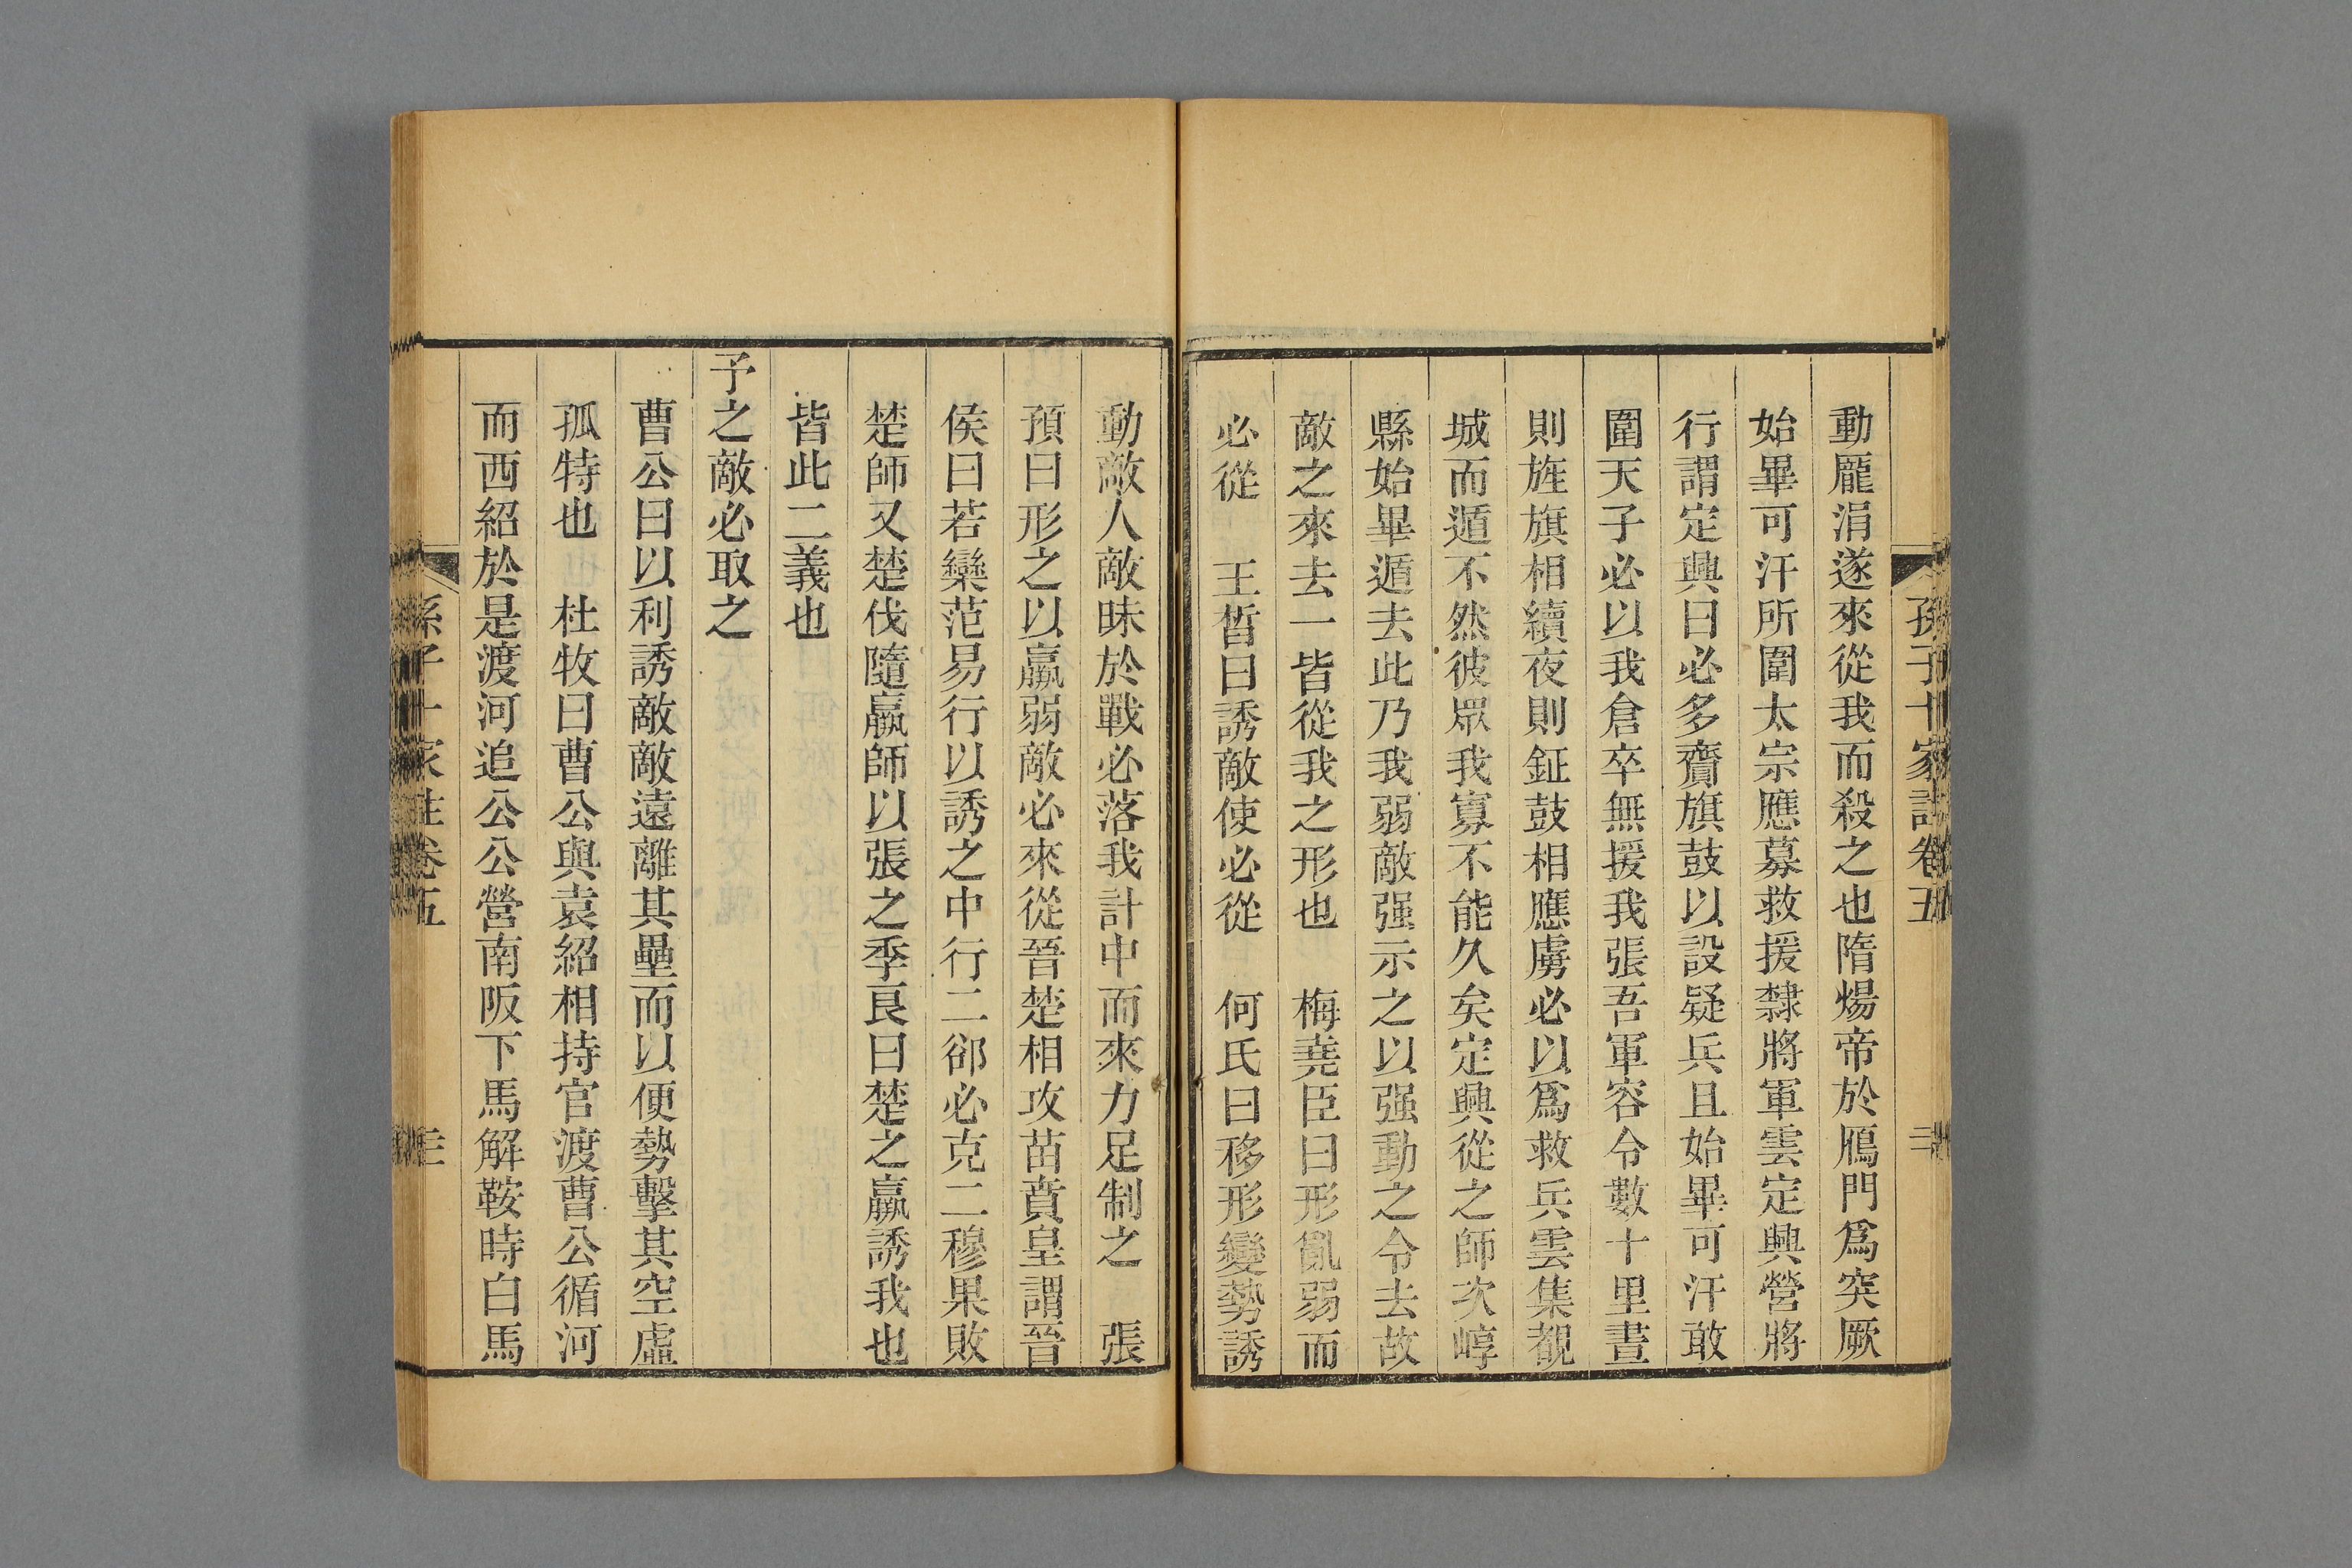 孫子十家註卷五
動龎涓遂來從我而殺之也隋煬帝於鴈門爲突厥
始畢可汗所圍太宗應募救援隸將軍雲定興營將
行謂定興曰必多齎旗鼓以設疑兵且始畢可汗敢
圍天子必以我倉卒無援我張吾軍容令數十里晝
則旌旗相續夜則鉦鼓相應虜必以爲救兵雲集覩
城而遁不然彼眾我寡不能久矣定興從之師次崞
縣始畢遁去此乃我弱敵强示之以强動之令去故
敵之來去一皆從我之形也　梅堯臣曰形亂弱而
必從　王晳曰誘敵使必從　何氏曰移形變勢誘
動敵人敵昧於戰必落我計中而來力足制之　張
預曰形之以羸弱敵必來從晉楚相攻苗賁皇謂晉
侯曰若欒范易行以誘之中行二郤必克二穆果敗
楚師又楚伐隨羸師以張之季良曰楚之羸誘我也
皆此二義也
予之敵必取之
曹公曰以利誘敵敵遠離其壘而以便勢擊其空虛
孤特也　杜牧曰曹公與袁紹相持官渡曹公循河
而西紹於是渡河追公公營南阪下馬解鞍時白馬
孫子十家註卷五